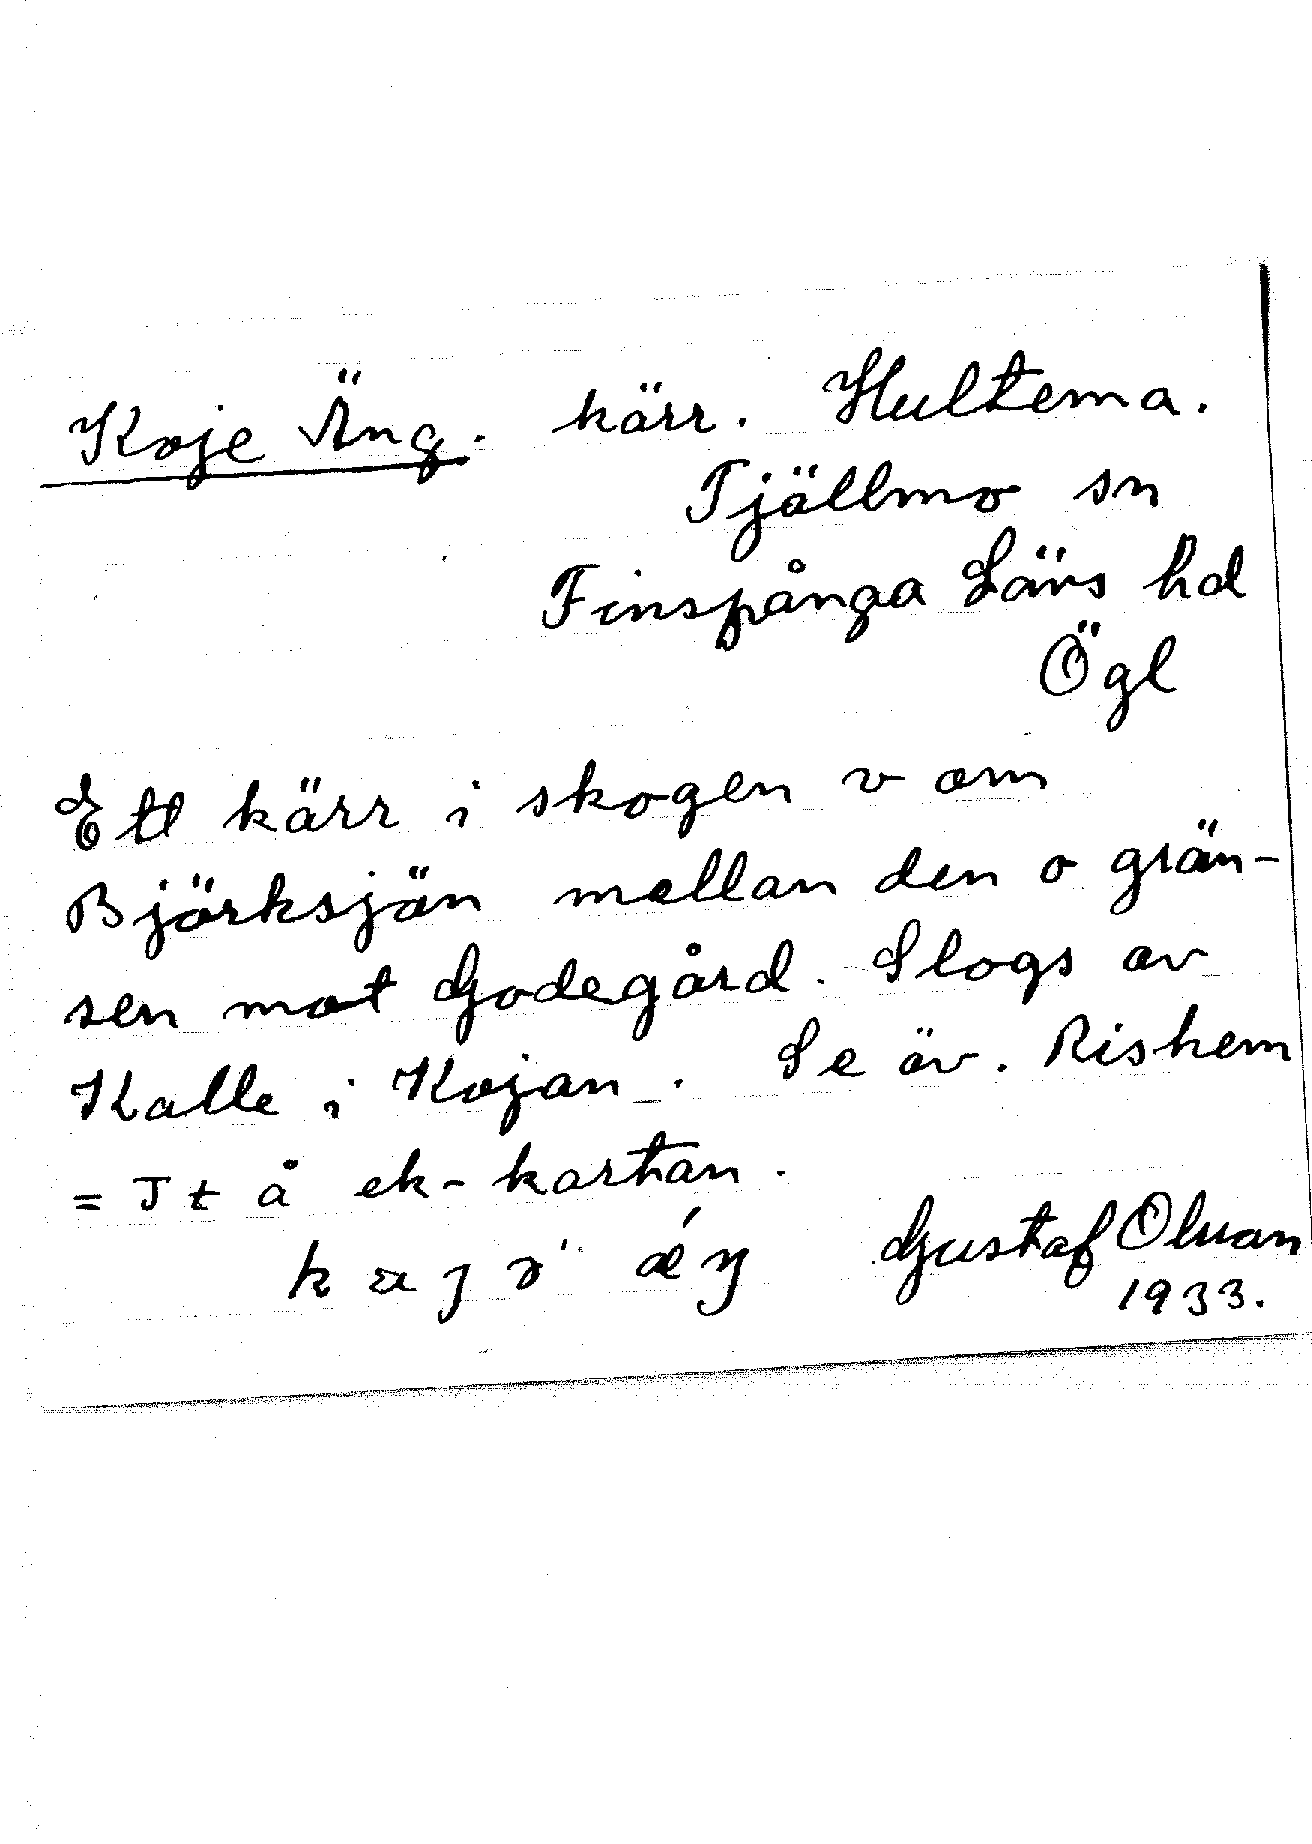 Koje Äng. kärr. Hultema.
Tjällmo sn
Finspånga Läns hd
Ögl
Ett kärr i skogen v om
Björksjön mellan den o grän-
sen mot Godegård. Slogs av
Kalle i Kojan. Se äv. Rishem
= Jt å ek-kartan.
Gustaf Olsson
1933.